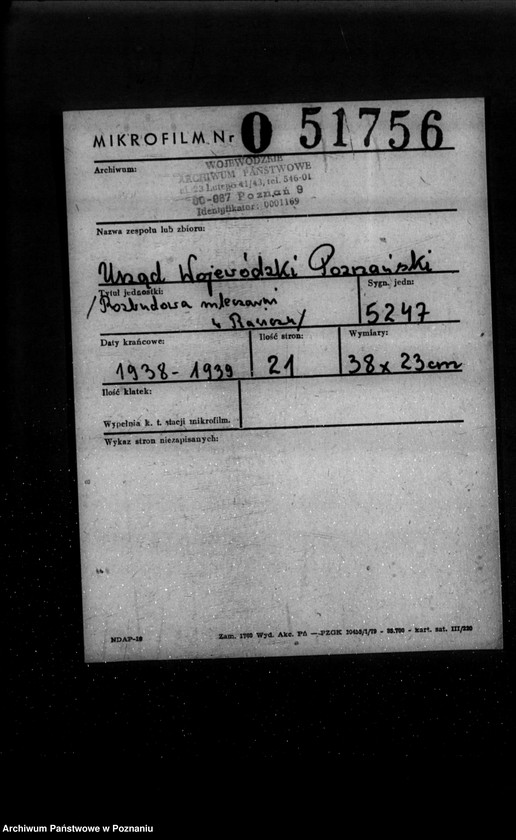 MIKROFILM. Nr O 51756
Archiwum:
WOJEWÓDZKIE
ARCHIWUM PAŃSTWOWE
ul. 23 Lutego 41/43, tel. 546-01
60-967 Poznań 9
Identyfikator: 0001169
Nazwa zespołu lub zbioru:
Urząd Wojewódzki Poznański
Tytuł jednostki:
/Rozbudowa mleczarni
Sygn. jedn:
5247
Daty krańcowe:
1938-1939
Ilość stron:
21
Wymiary:
38 x 23 cm
Ilość klatek:
Wypełnia k. t. stacji mikrofilm.
Wykaz stron niezapisanych:
NDAP-18
Zam. 1760 Wyd. Akc. Pń — PZGK
kart. sat. III/220
Archiwum Państwowe w Poznaniu